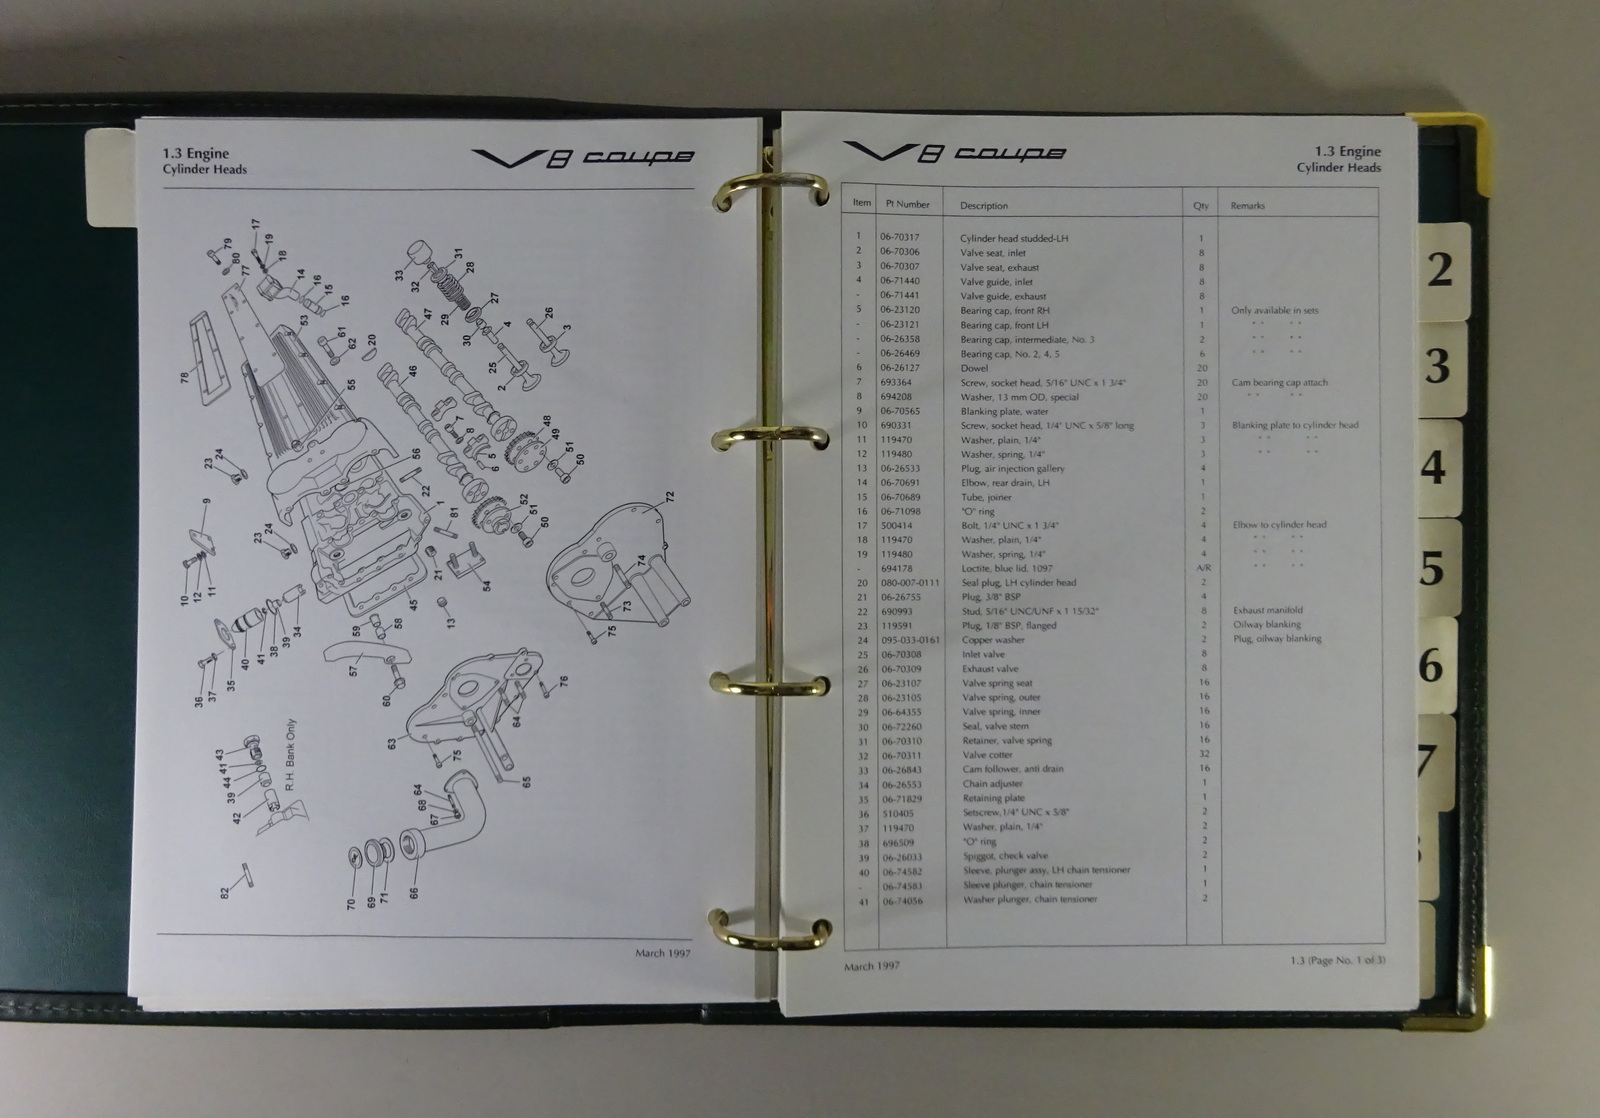 1.3 Engine
Cylinder Heads
V8 coupe
17
79
19
80
18
77
14
16
15
16
53
61
62
20
78
55
33
32
31
28
29
27
30
4
26
3
25
2
47
46
7
8
5
6
48
49
51
50
52
51
50
23
24
56
22
1
81
9
23
24
10
12
11
21
54
13
45
34
39
38
41
40
35
37
36
59
58
57
60
72
74
73
75
76
64
63
75
65
43
41
44
39
42
R.H. Bank Only
64
68
67
82
70
69
71
66
March 1997
V8 coupe
1.3 Engine
Cylinder Heads
Item Pt Number Description Qty Remarks
1 06-70317 Cylinder head studded-LH 1
2 06-70306 Valve seat, inlet 8
3 06-70307 Valve seat, exhaust 8
4 06-71440 Valve guide, inlet 8
- 06-71441 Valve guide, exhaust 8
5 06-23120 Bearing cap, front RH 1 Only available in sets
- 06-23121 Bearing cap, front LH 1 " " " "
- 06-26358 Bearing cap, intermediate, No. 3 2 " " " "
- 06-26469 Bearing cap, No. 2, 4, 5 6 " " " "
6 06-26127 Dowel 20
7 693364 Screw, socket head, 5/16" UNC x 1 3/4" 20 Cam bearing cap attach
8 694208 Washer, 13 mm OD, special 20 " " " "
9 06-70565 Blanking plate, water 1
10 690331 Screw, socket head, 1/4" UNC x 5/8" long 3 Blanking plate to cylinder head
11 119470 Washer, plain, 1/4" 3 " " " "
12 119480 Washer, spring, 1/4" 3 " " " "
13 06-26533 Plug, air injection gallery 4
14 06-70691 Elbow, rear drain, LH 1
15 06-70689 Tube, joiner 1
16 06-71098 "O" ring 2
17 500414 Bolt, 1/4" UNC x 1 3/4" 4 Elbow to cylinder head
18 119470 Washer, plain, 1/4" 4 " " " "
19 119480 Washer, spring, 1/4" 4 " " " "
- 694178 Loctite, blue lid. 1097 A/R " " " "
20 080-007-0111 Seal plug, LH cylinder head 2
21 06-26755 Plug, 3/8" BSP 4
22 690993 Stud, 5/16" UNC/UNF x 1 15/32" 8 Exhaust manifold
23 119591 Plug, 1/8" BSP, flanged 2 Oilway blanking
24 095-033-0161 Copper washer 2 Plug, oilway blanking
25 06-70308 Inlet valve 8
26 06-70309 Exhaust valve 8
27 06-23107 Valve spring seat 16
28 06-23105 Valve spring, outer 16
29 06-64355 Valve spring, inner 16
30 06-72260 Seal, valve stem 16
31 06-70310 Retainer, valve spring 16
32 06-70311 Valve cotter 32
33 06-26843 Cam follower, anti drain 16
34 06-26553 Chain adjuster 1
35 06-71829 Retaining plate 1
36 510405 Setscrew,1/4" UNC x 5/8" 2
37 119470 Washer, plain, 1/4" 2
38 696509 "O" ring 2
39 06-26033 Spiggot, check valve 2
40 06-74582 Sleeve, plunger assy, LH chain tensioner 1
- 06-74583 Sleeve plunger, chain tensioner 1
41 06-74056 Washer plunger, chain tensioner 2
March 1997
1.3 (Page No. 1 of 3)
2
3
4
5
6
7